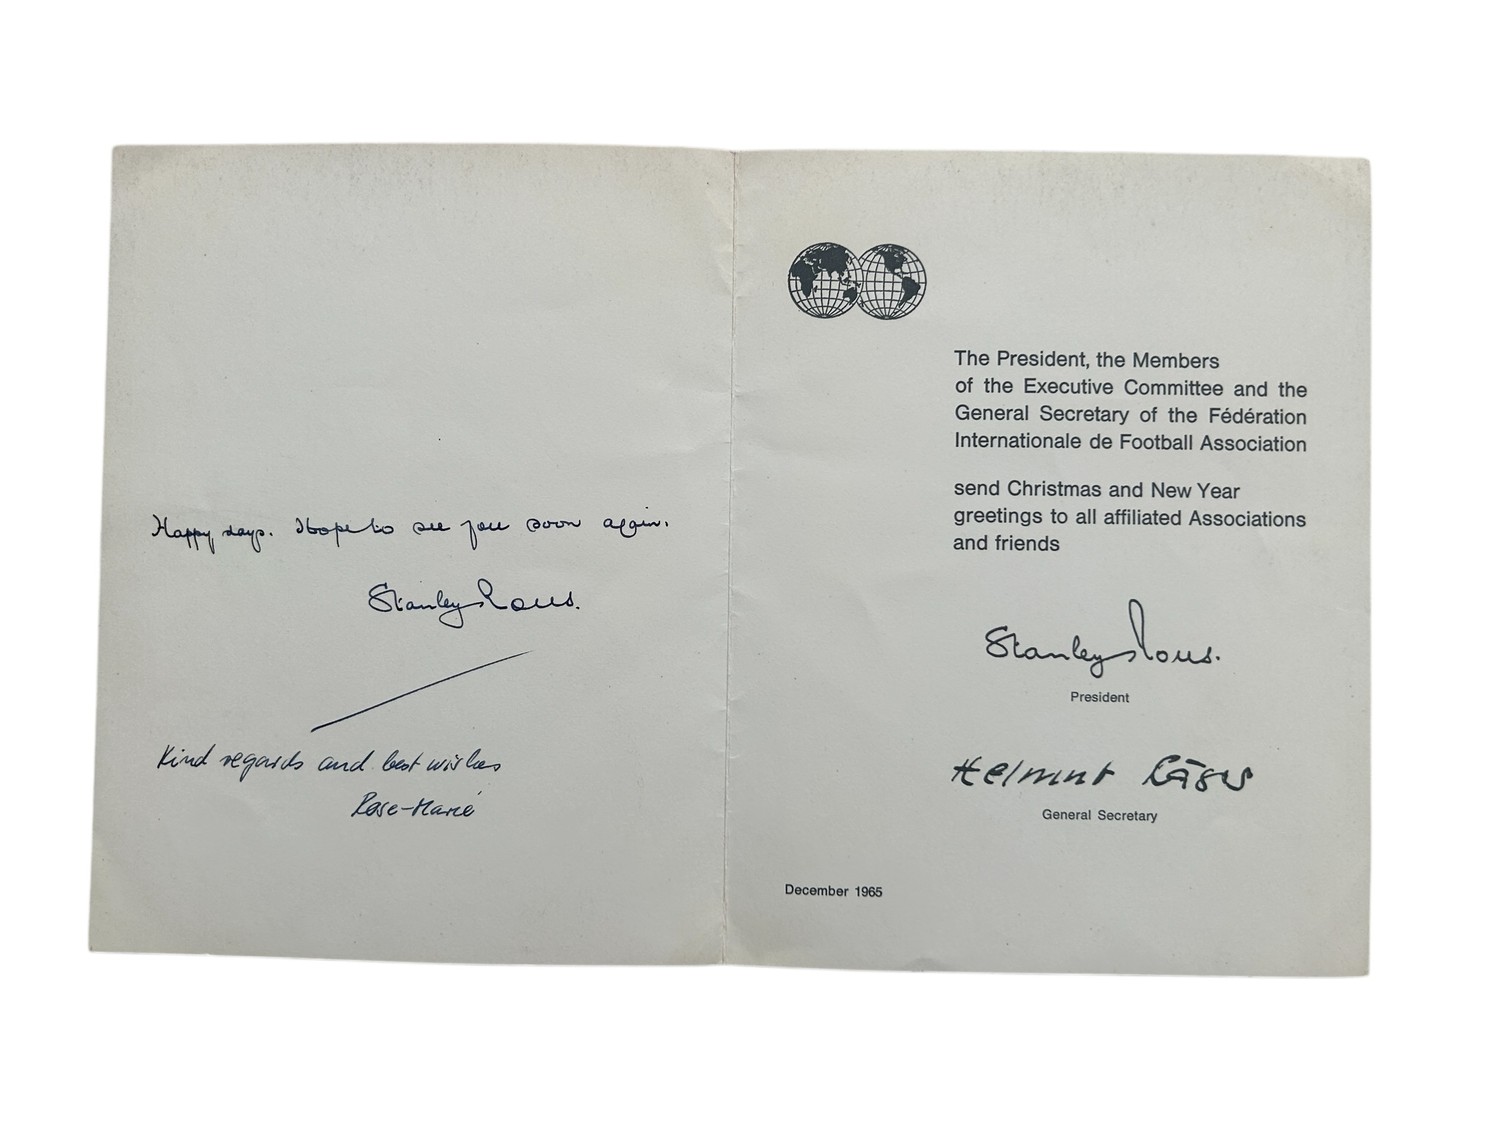 Happy days. Hope to see you soon again.
Stanley Rous.
Kind regards and best wishes
Rose-Marie
The President, the Members
of the Executive Committee and the
General Secretary of the Fédération
Internationale de Football Association
send Christmas and New Year
greetings to all affiliated Associations
and friends
Stanley Rous.
President
Helmut Käser
General Secretary
December 1965